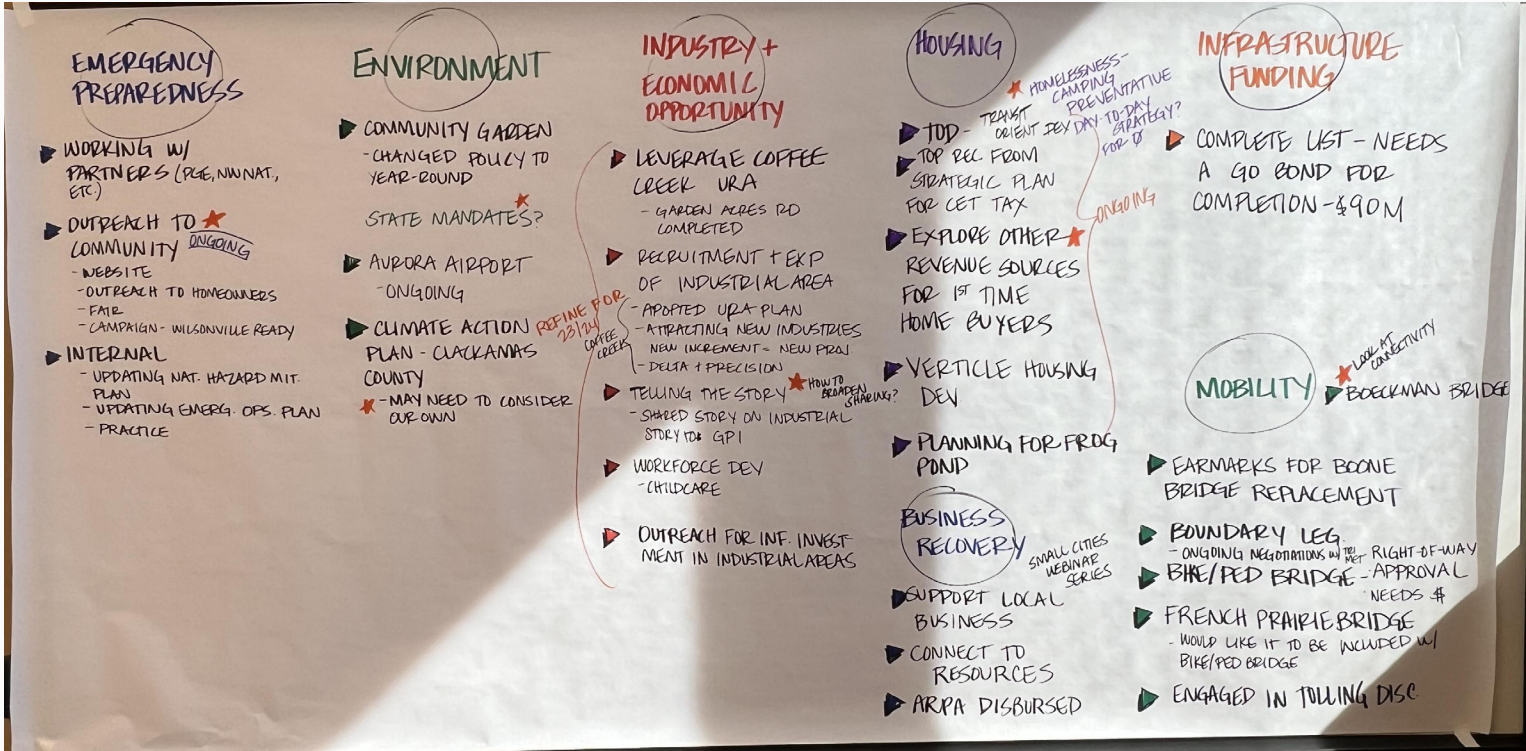 EMERGENCY
PREPAREDNESS
WORKING W/
PARTNERS (PGE, NW NAT.,
ETC.)
OUTREACH TO
COMMUNITY ONGOING
- WEBSITE
- OUTREACH TO HOMEOWNERS
- FAIR
- CAMPAIGN - WILSONVILLE READY
INTERNAL
- UPDATING NAT. HAZARD MIT.
PLAN
- UPDATING EMERG. OPS. PLAN
- PRACTICE
ENVIRONMENT
COMMUNITY GARDEN
- CHANGED POLICY TO
YEAR-ROUND
STATE MANDATES?
AURORA AIRPORT
- ONGOING
CLIMATE ACTION
PLAN - CLACKAMAS
COUNTY
- MAY NEED TO CONSIDER
OUR OWN
INDUSTRY +
ECONOMIC
OPPORTUNITY
REFINE FOR
23/24
LEVERAGE COFFEE
CREEK URA
- GARDEN ACRES RD
COMPLETED
RECRUITMENT + EXP
OF INDUSTRIAL AREA
COFFEE
CREEK
- ADOPTED URA PLAN
- ATTRACTING NEW INDUSTRIES
NEW INCREMENT = NEW PROJ
- DELTA + PRECISION
TELLING THE STORY
HOW TO
BROADEN
SHARING?
- SHARED STORY ON INDUSTRIAL
STORY TO GPI
WORKFORCE DEV
- CHILDCARE
OUTREACH FOR INF. INVEST-
MENT IN INDUSTRIAL AREAS
HOUSING
HOMELESSNESS -
CAMPING
PREVENTATIVE
DAY-TO-DAY
STRATEGY?
FOR Ø
TOD - TRANSIT
ORIENT DEV
TOP REC FROM
STRATEGIC PLAN
FOR CET TAX
ONGOING
EXPLORE OTHER
REVENUE SOURCES
FOR 1ST TIME
HOME BUYERS
VERTICLE HOUSING
DEV
PLANNING FOR FROG
POND
BUSINESS
RECOVERY
SMALL CITIES
WEBINAR
SERIES
SUPPORT LOCAL
BUSINESS
CONNECT TO
RESOURCES
ARPA DISBURSED
INFRASTRUCTURE
FUNDING
COMPLETE LIST - NEEDS
A GO BOND FOR
COMPLETION - $90M
MOBILITY
LOOK AT
CONNECTIVITY
BOECKMAN BRIDGE
EARMARKS FOR BOONE
BRIDGE REPLACEMENT
BOUNDARY LEG.
- ONGOING NEGOTIATIONS W/ TRI MET
BIKE/PED BRIDGE - RIGHT-OF-WAY
APPROVAL
NEEDS $
FRENCH PRAIRIE BRIDGE
- WOULD LIKE IT TO BE INCLUDED W/
BIKE/PED BRIDGE
ENGAGED IN TOLLING DISC.